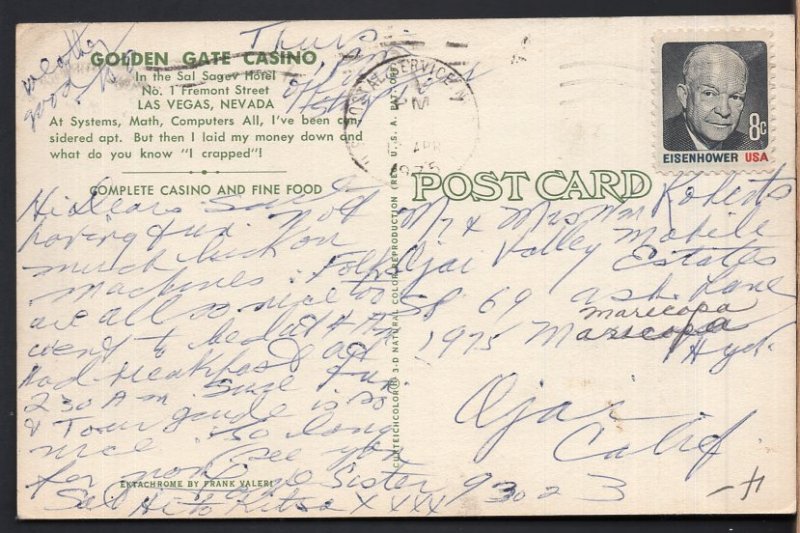 GOLDEN GATE CASINO
In the Sal Sagev Hotel
No. 1 Fremont Street
LAS VEGAS, NEVADA
At Systems, Math, Computers All, I've been con-
sidered apt. But then I laid my money down and
what do you know "I crapped"!
COMPLETE CASINO AND FINE FOOD
weather
good.
Thurs
1 pm
Hi Dears. Sure
having fun. Not
much luck on
machines. Folks
are all so nice too
went to bed at 4 AM
had breakfast at
2 30 A m. Sure fun.
& Tour guide is so
nice. So long
see you
for now Love Sister
Sal Hi to Kitsa XXXX
EKTACHROME BY FRANK VALERI
CURTEICHCOLOR® 3-D NATURAL COLOR REPRODUCTION (REG. U.S.A. PAT. OFF.)
U.S. POSTAL SERVICE
PM
APR
1975
8c
EISENHOWER USA
POST CARD
Mr & Mrs Wm Roberts
Ojai Valley Mobile
Estates
58 69 ash Lane
1975 Maricopa
Maricopa
Hyd.
Ojai
Calif.
93023